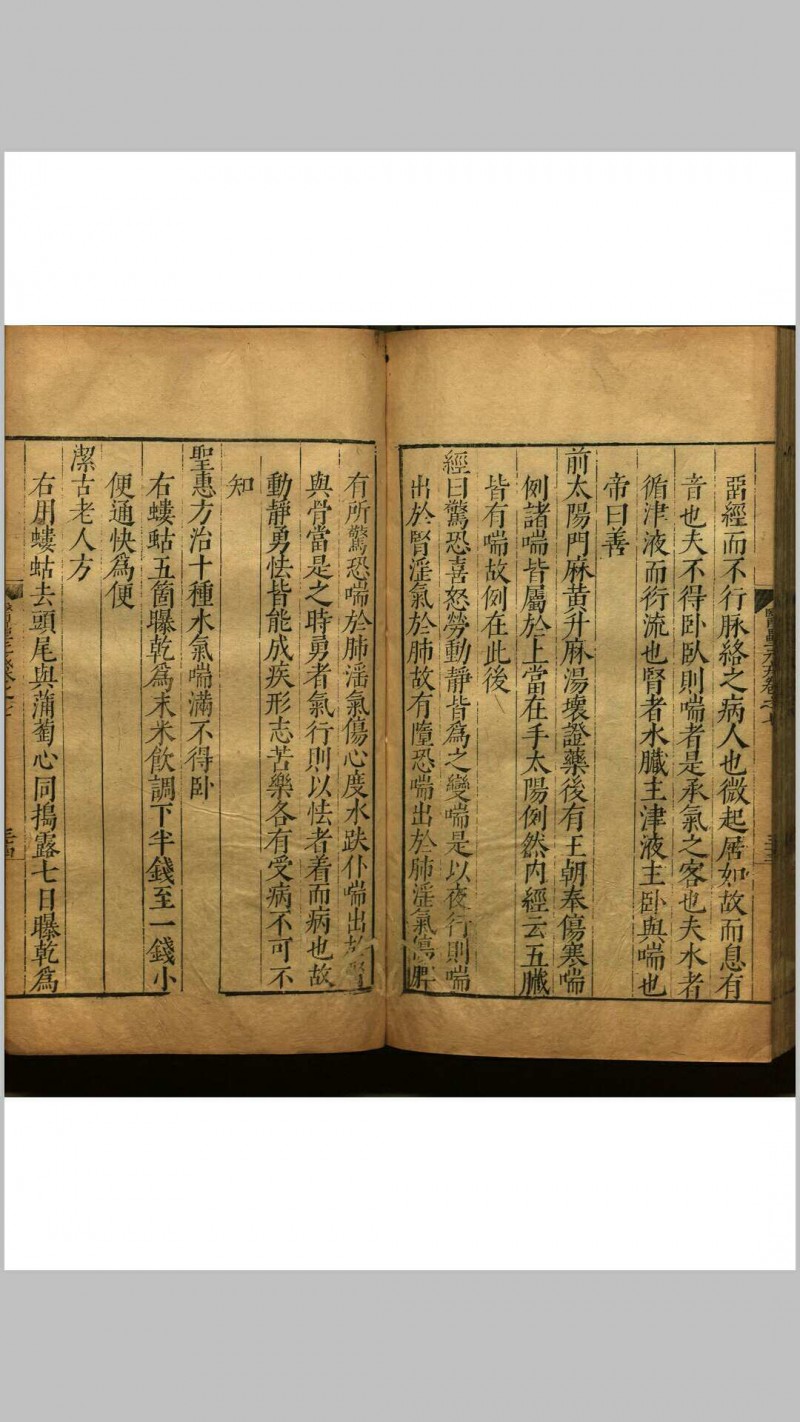 留經而不行脉絡之病人也微起居如故而息有
音也夫不得卧臥則喘者是承氣之客也夫水者
循津液而衍流也腎者水臟主津液主卧與喘也
帝曰善
前太陽門麻黃升麻湯壞證藥後有王朝奉傷寒喘
例諸喘皆屬於上當在手太陽例然内經云五臟
皆有喘故例在此後
經曰驚恐喜怒勞動靜皆爲之變喘是以夜行則喘
出於腎淫氣於肺故有墮恐喘出於肺淫氣傷脾
有所驚恐喘於肺滛氣傷心度水跌仆喘出於腎
與骨當是之時勇者氣行則以怯者着而病也故
動靜勇怯皆能成疾形志苦樂各有受病不可不
知
聖惠方治十種水氣喘滿不得卧
右螻蛄五箇曝乾爲末米飲調下半錢至一錢小
便通快爲便
潔古老人方
右用螻蛄去頭尾與蒲萄心同搗露七日曝乾爲